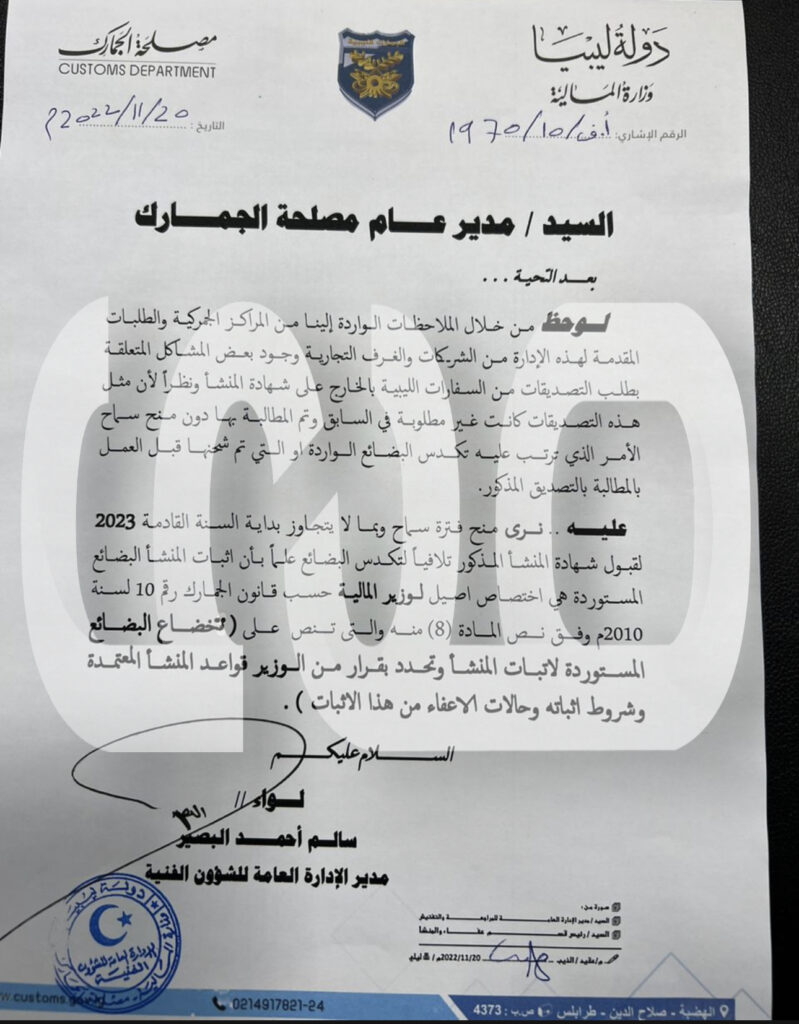 دولة ليبيا
وزارة المالية
مصلحة الجمارك
CUSTOMS DEPARTMENT
الرقم الإشاري: أ.ف/10/1970
التاريخ: 2022/11/20م
السيد / مدير عام مصلحة الجمارك
بعد التحية ...
لوحظ من خلال الملاحظات الواردة إلينا من المراكز الجمركية والطلبات
المقدمة لهذه الإدارة من الشركات والغرف التجارية وجود بعض المشاكل المتعلقة
بطلب التصديقات من السفارات الليبية بالخارج على شهادة المنشأ ونظراً لأن مثل
هذه التصديقات كانت غير مطلوبة في السابق وتم المطالبة بها دون منح سماح
الأمر الذي ترتب عليه تكدس البضائع الواردة او التي تم شحنها قبل العمل
بالمطالبة بالتصديق المذكور.
عليه .. نرى منح فترة سماح وبما لا يتجاوز بداية السنة القادمة 2023
لقبول شهادة المنشأ المذكور تلافياً لتكدس البضائع علماً بأن اثبات المنشأ البضائع
المستوردة هي اختصاص اصيل لوزير المالية حسب قانون الجمارك رقم 10 لسنة
2010م وفق نص المادة (8) منه والتى تنص على (تخضاع البضائع
المستوردة لاتبات المنشأ وتحدد بقرار من الوزير قواعد المنشأ المعتمدة
وشروط اثباته وحالات الاعفاء من هذا الاثبات ) .
السلام عليكم
لواء //
سالم أحمد البصير
مدير الإدارة العامة للشؤون الفنية
دولة ليبيا
الإدارة العامة للشؤون
الفنية
صورة من :
السيد / مدير الإدارة العامة للمراجعة والتفتيش
السيد / رئيس قسم
والمنشأ
2022/11/20م
الهضبة - صلاح الدين - طرابلس ص.ب : 4373
0214917821-24
www.customs.gov.ly